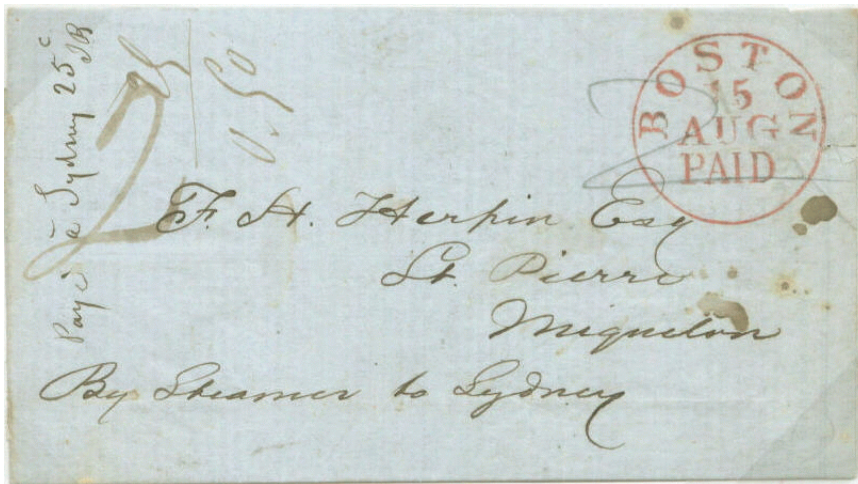 Payé à Sydney 25c
0.50
BOSTON
15
AUG
PAID
2
F. H. Herpin Esq
St. Pierre
Miquelon
By Steamer to Sydney